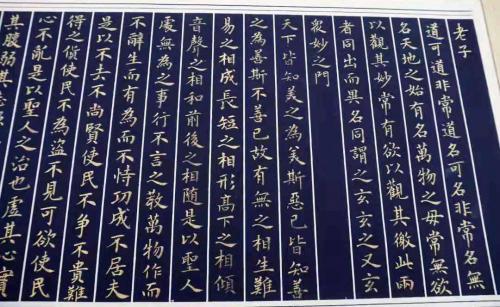 老子
道可道非常道名可名非常名無
名天地之始有名萬物之母常無欲
以觀其妙常有欲以觀其徼此兩
者同出而異名同謂之玄玄之又玄
衆妙之門
天下皆知美之為美斯惡已皆知善
之為善斯不善已故有無之相生難
易之相成長短之相形高下之相傾
音聲之相和前後之相随是以聖人
處無為之事行不言之教萬物作而
不辭生而有為而不恃功成不居夫
是以不去不尚賢使民不争不貴難
得之貨使民不為盜不見可欲使民
心不亂是以聖人之治也虛其心實
其腹弱其志